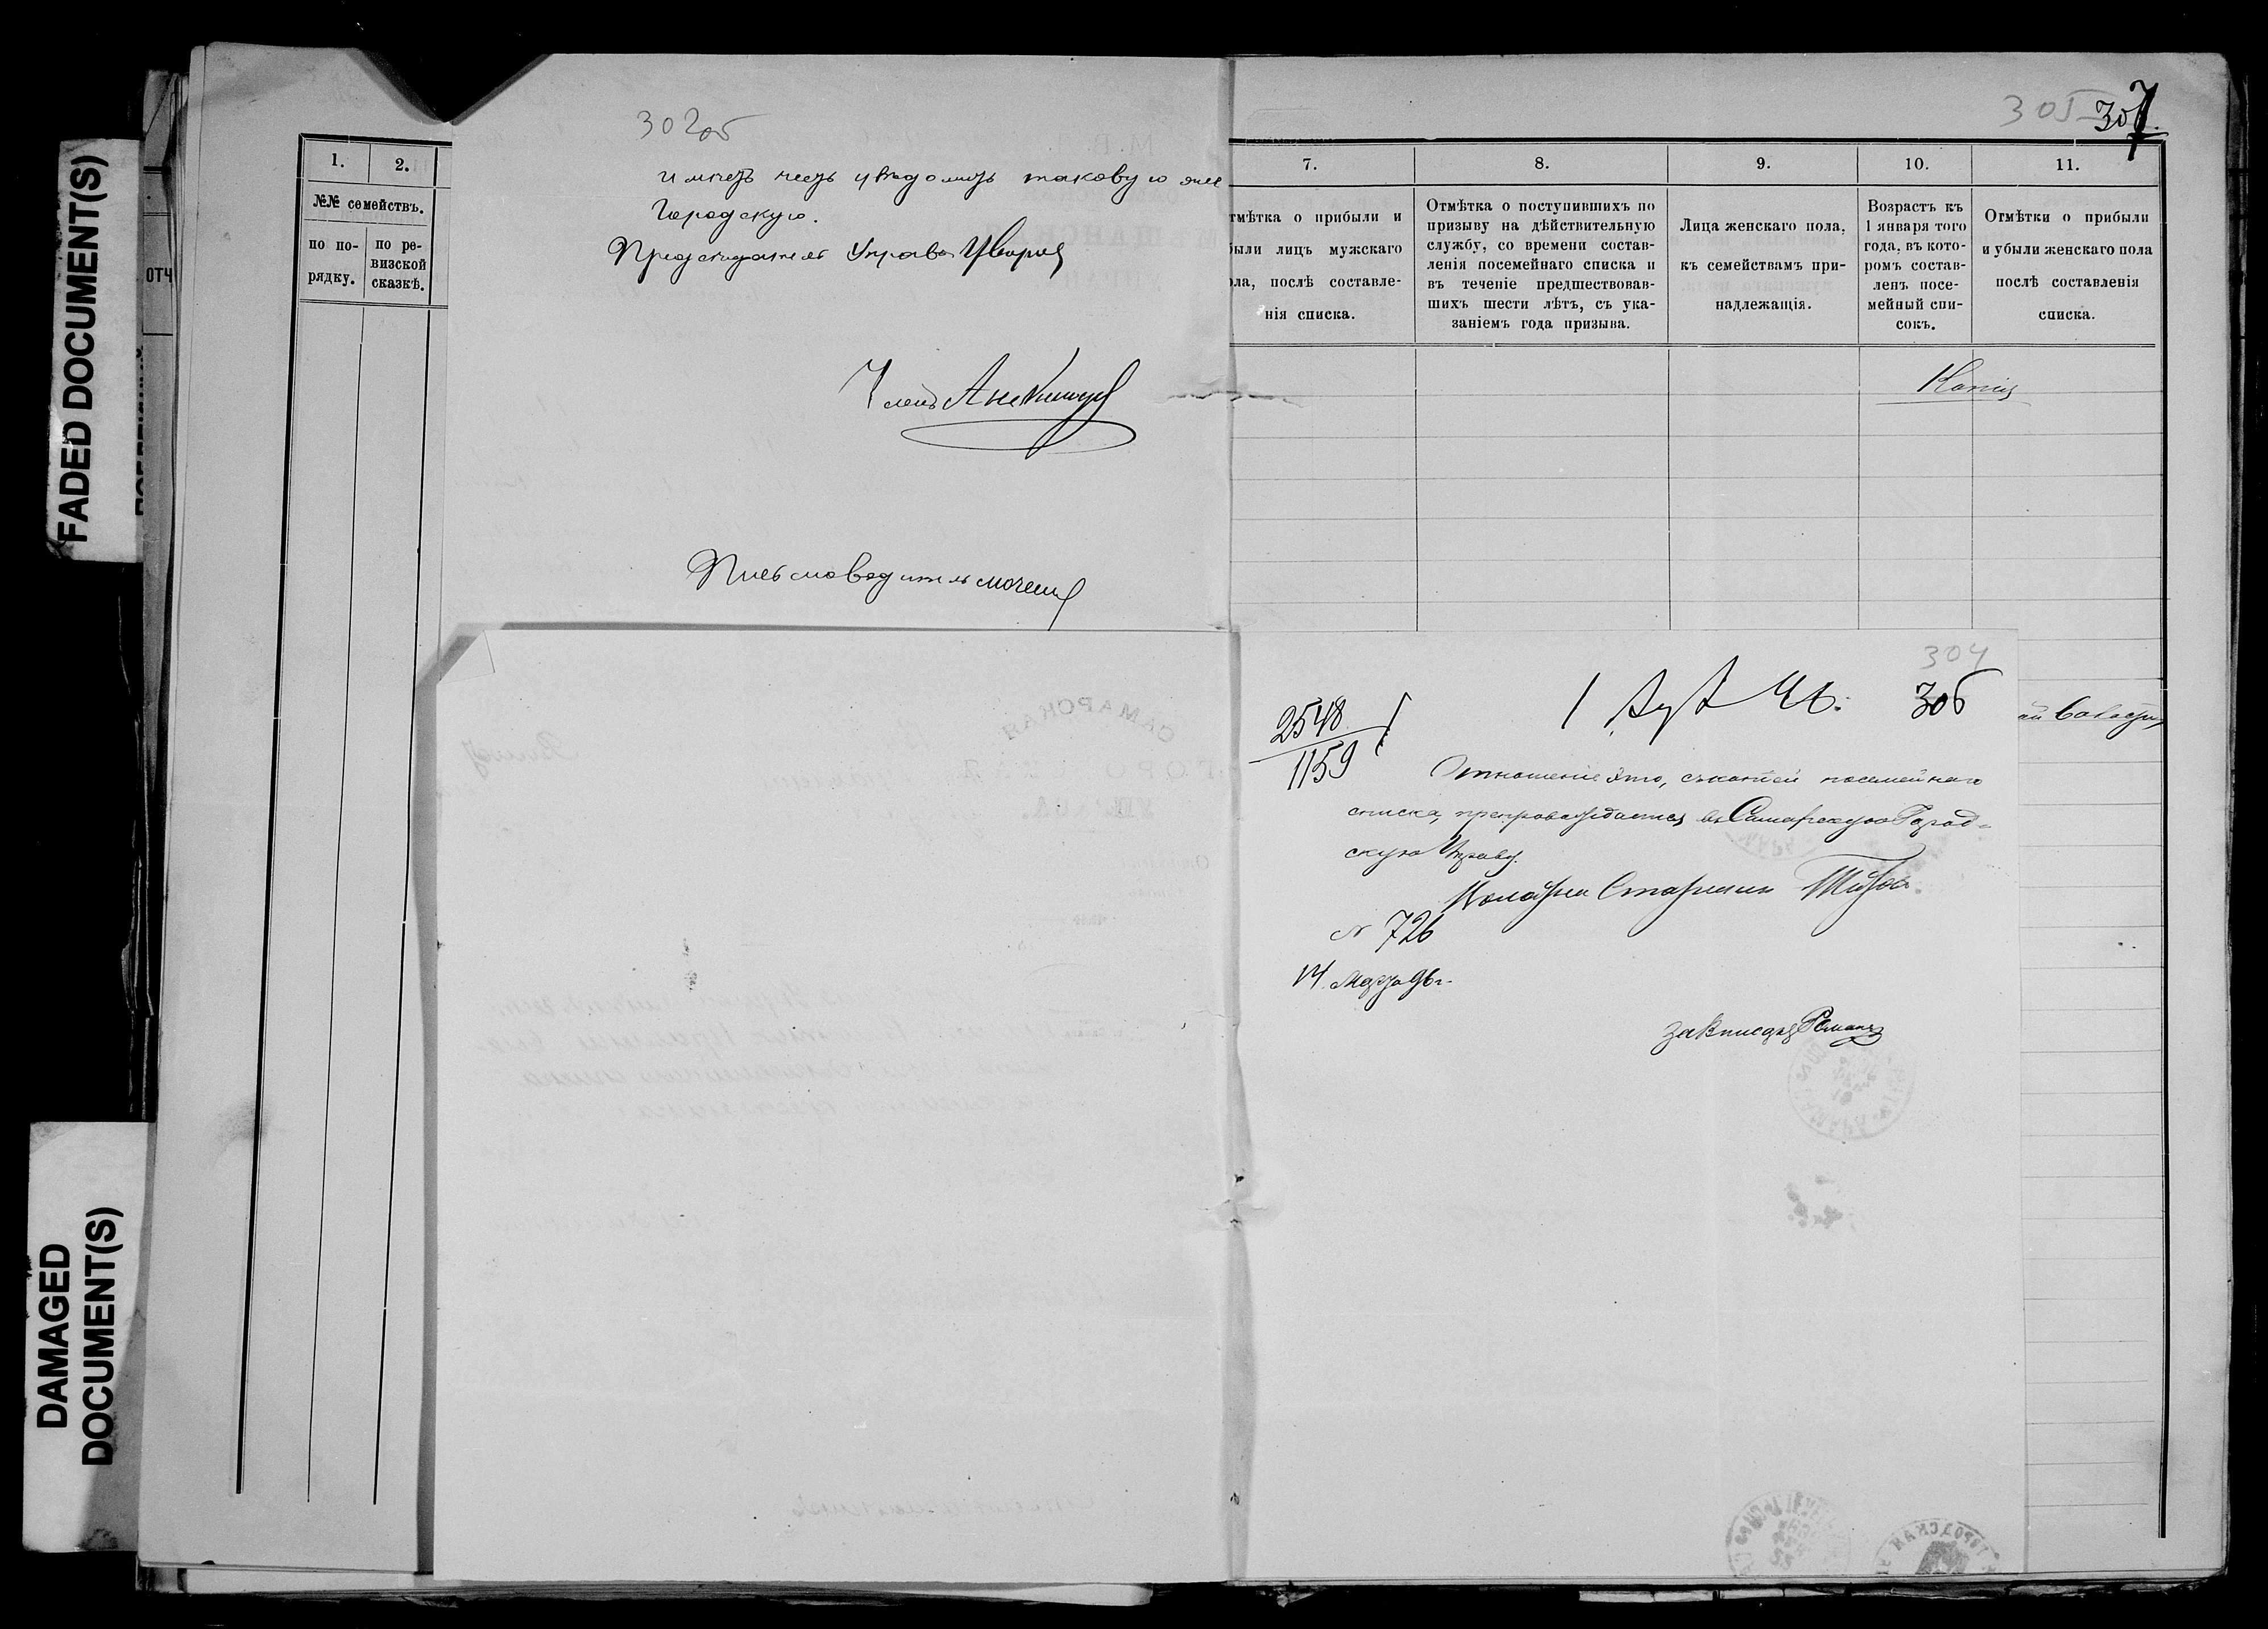 FADED DOCUMENT(S)
DAMAGED
DOCUMENT(S)
отч
1.
2.
№№ семействъ.
по по-
рядку.
по ре-
визской
сказкѣ.
302об
имѣетъ честь увѣдомить таковую же
Городскую.
Предсѣдатель Управы
Членъ
Письмоводитель
305
307
7.
8.
9.
10.
11.
тмѣтка о прибыли и
были лицъ мужскаго
ола, послѣ составле-
нія списка.
Отмѣтка о поступившихъ по
призыву на дѣйствительную
службу, со времени состав-
ленія посемейнаго списка и
въ теченіе предшествовав-
шихъ шести лѣтъ, съ ука-
заніемъ года призыва.
Лица женскаго пола,
къ семействамъ при-
надлежащія.
Возрастъ къ
1 января того
года, въ кото-
ромъ состав-
ленъ посе-
мейный спи-
сокъ.
Отмѣтки о прибыли
и убыли женскаго пола
послѣ составленія
списка.
Копія
304
306
2548
1159
Отношеніе это, съ копіей посемейнаго
списка, препровождается въ Самарскую Город-
скую Управу.
Волостной Старшина
№ 726
14 Марта 96 г.
За Писаря
САМАРСКАЯ
ГОРОДСКАЯ
УПРАВА.